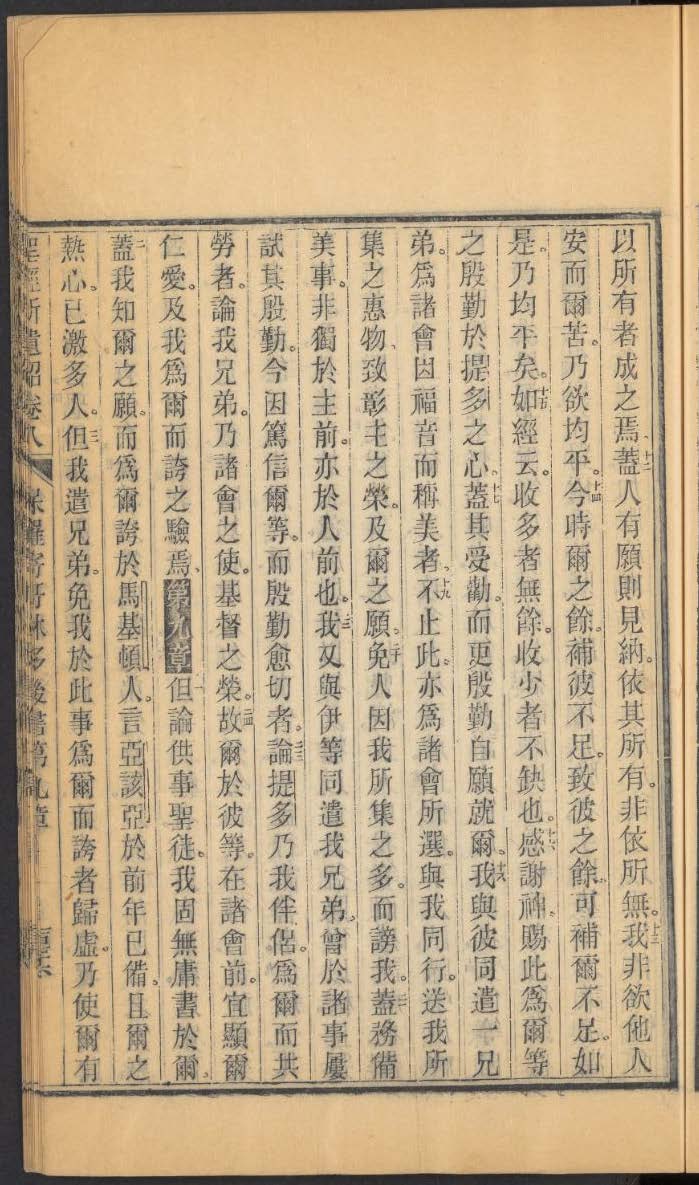 以所有者成之焉、十二蓋人有願則見納。依其所有。非依所無。十三我非欲他人
安而爾苦。乃欲均平。十四今時爾之餘。補彼不足。致彼之餘、可補爾不足。如
是。乃均平矣。十五如經云。收多者無餘。收少者不缺也。十六感謝神、賜此爲爾等
之殷勤於提多之心。十七蓋其受勸。而更殷勤自願就爾。十八我與彼同遣一兄
弟。爲諸會因福音而稱美者、十九不止此。亦爲諸會所選。與我同行。送我所
集之惠物、致彰主之榮。及爾之願、二十免人因我所集之多。而謗我。二一蓋務備
美事。非獨於主前。亦於人前也。二二我又與伊等同遣我兄弟。曾於諸事屢
試其殷勤。今因篤信爾等。而殷勤愈切者。二三論提多乃我伴侶。爲爾而共
勞者。論我兄弟。乃諸會之使。基督之榮。二四故爾於彼等。在諸會前。宜顯爾
仁愛。及我爲爾而誇之驗焉、第九章一但論供事聖徒。我固無庸書於爾、
二蓋我知爾之願。而爲爾誇於馬基頓人。言亞該亞於前年已備。且爾之
熱心。已激多人。三但我遣兄弟。免我於此事爲爾而誇者歸虛。乃使爾有
聖經新遺詔 卷八 保羅寄哥林多後書第九章